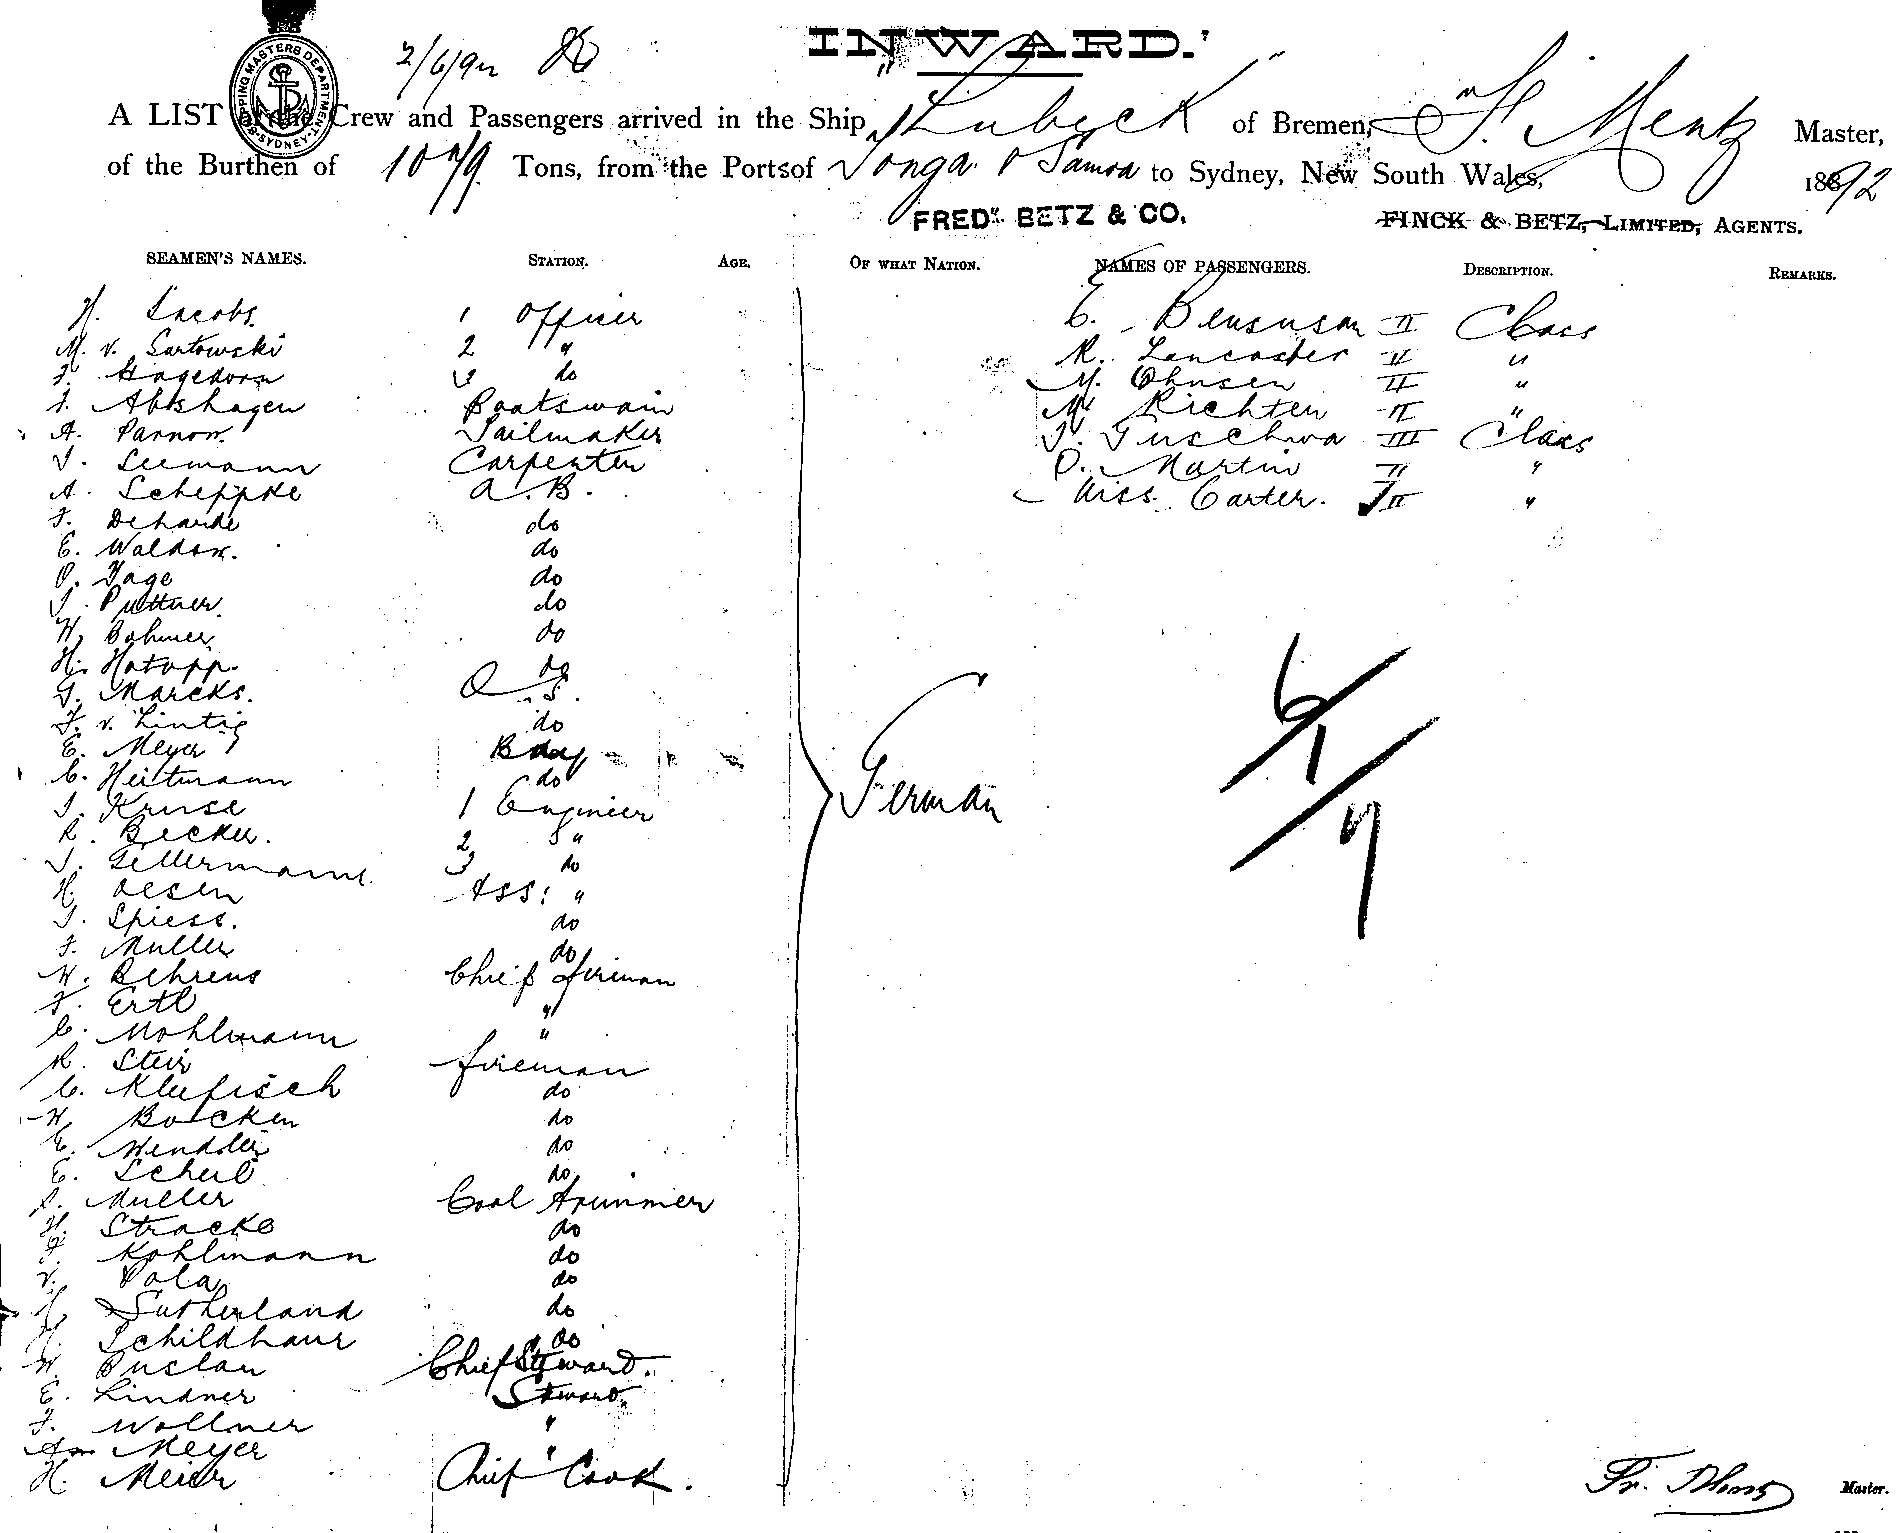 INWARD.
2/6/92
SHIPPING MASTERS DEPARTMENT SYDNEY
A LIST of the Crew and Passengers arrived in the Ship "Lubeck" of Bremen, Fr. Mentz Master,
of the Burthen of Tons, from the Ports of Tonga & Samoa to Sydney, New South Wales, 1892
FREDK BETZ & CO. FINCK & BETZ, LIMITED, AGENTS.
SEAMEN'S NAMES. STATION. AGE. OF WHAT NATION. NAMES OF PASSENGERS. DESCRIPTION. REMARKS.
H. Jacobs. 1 Officer C. Bensusan II Class
M. v. Sartowski 2 " R. Lancaster II "
F. Hagedorn 3 do M. Ohnsen II "
J. Abshagen Boatswain M. Richter II "
A. Parnow. Sailmaker J. Guschwa III Class
J. Seemann Carpenter O. Martin II "
A. Scheppke A.B. Miss Carter. II "
F. Deharde do
E. Waldow. do
O. Tage do
J. Puttner. do
W. Bohmer do
H. Hotopp. do
G. Marcks. O.S.
F. v. Lintig do
E. Meyer Boy
C. Heitmann do
J. Kruse 1 Engineer
R. Becker. 2 "
J. Gellermann 3 do
H. Oesen Ass: "
J. Spiess. do
F. Muller do
W. Behrens Chief fireman
F. Ertl "
C. Mohlmann "
R. Stein fireman
C. Klufisch do
W. Boecken do
E. Wendler do
E. Scheil do
A. Muller Coal trimmer
H. Stracke do
F. Kohlmann do
V. Pola do
Sutherland do
H. Schildhaur do
W. Buslan Chief Steward.
E. Lindner Steward.
F. Wollner "
Meyer "
H. Meier Chief Cook.
German
6/1/7
Fr. Mentz Master.